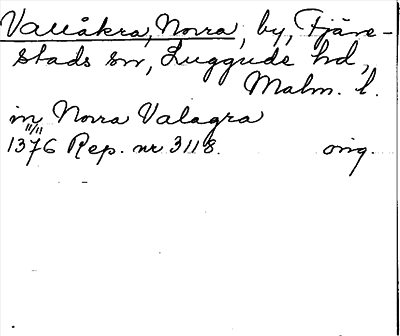 Vallåkra, Norra, by, Fjäre-
stads sn, Luggude hd,
Malm. l.
in Norra Valagra
11/11
1376 Rep. nr 3118. orig.